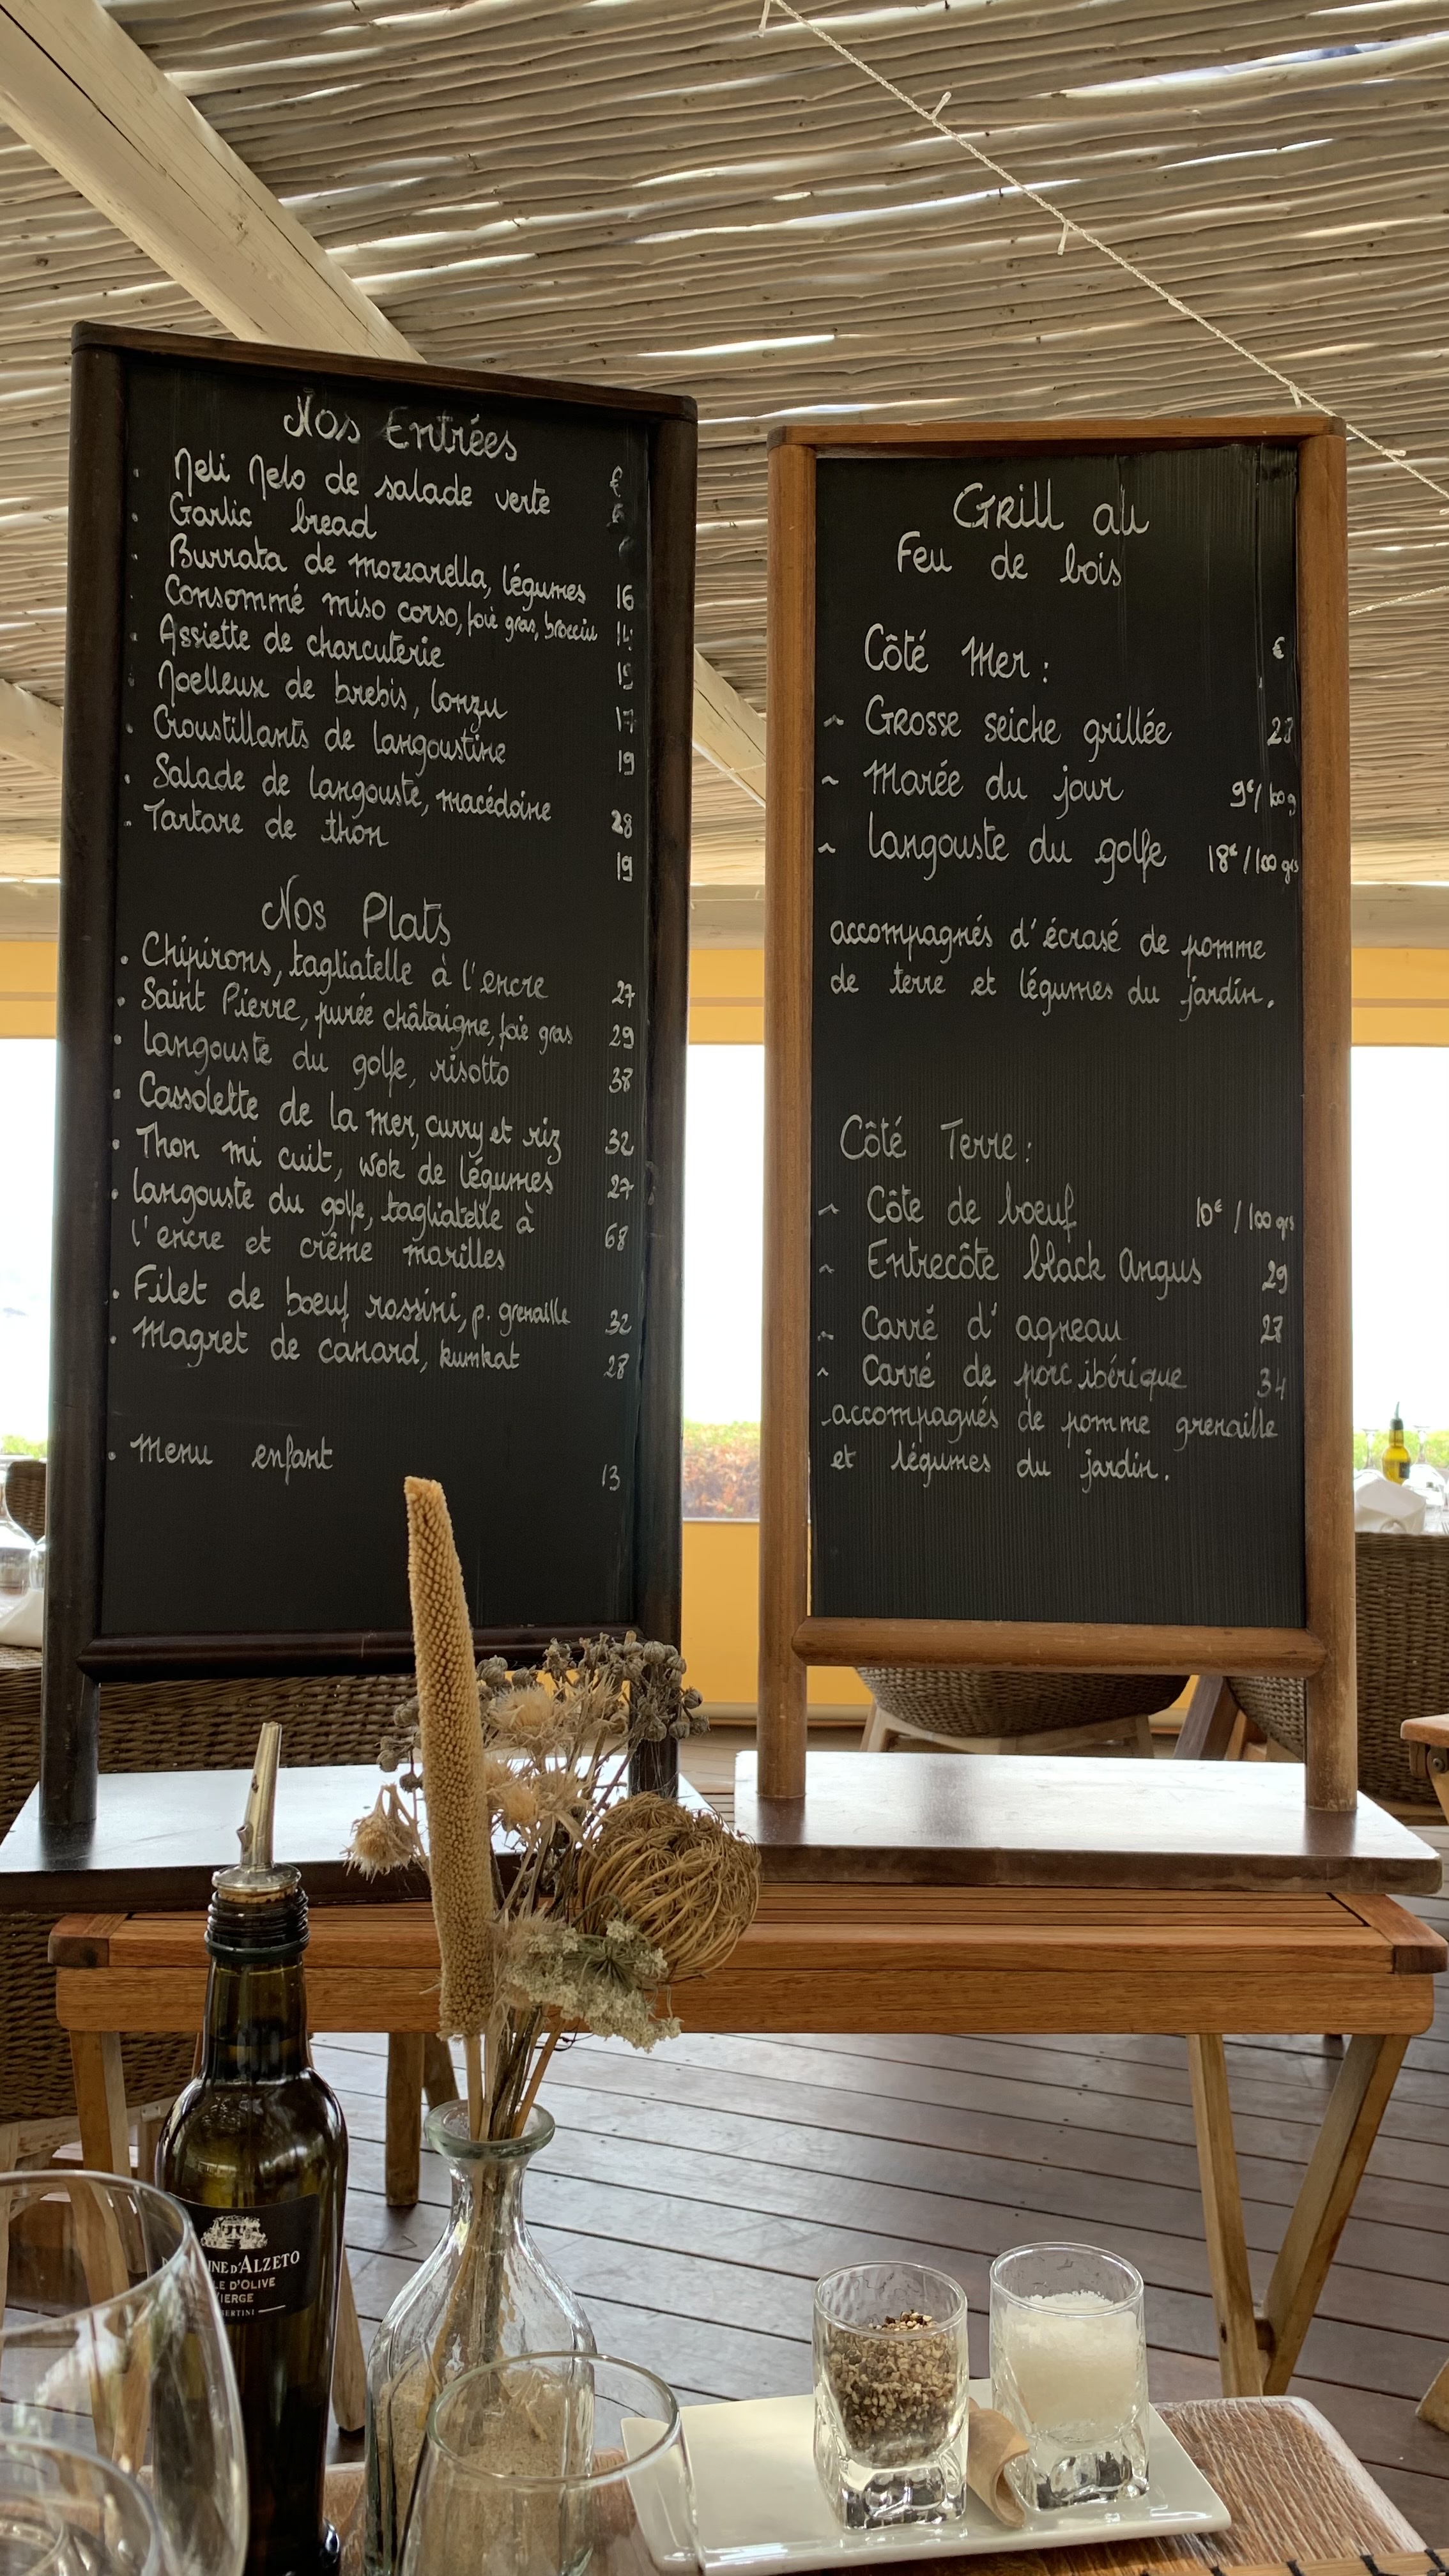 Nos Entrées
€
. Meli Melo de salade verte
. Garlic bread
. Burrata de mozzarella, légumes 16
. Consommé miso corso, foie gras, brocciu 14
. Assiette de charcuterie 19
. Moelleux de brebis, lonzu 17
. Croustillants de langoustine 19
. Salade de langouste, macédoine 28
. Tartare de thon 19
Nos Plats
. Chipirons, tagliatelle à l'encre 27
. Saint Pierre, purée châtaigne, foie gras 29
. langouste du golfe, risotto 38
. Cassolette de la mer, curry et riz 32
. Thon mi cuit, wok de légumes 27
. langouste du golfe, tagliatelle à 68
l'encre et crème morilles
. Filet de bœuf rossini, p. grenaille 32
. Magret de canard, kumkat 28
. Menu enfant 13
Grill au
Feu de bois
Côté Mer : €
~ Grosse seiche grillée
~ Marée du jour 9€/100g
~ Langouste du golfe 18€/100grs
accompagnés d'écrasé de pomme
de terre et légumes du jardin.
Côté Terre :
~ Côte de bœuf 10€/100grs
~ Entrecôte black Angus 29
~ Carré d'agneau 27
~ Carré de porc ibérique 34
accompagnés de pomme grenaille
et légumes du jardin.
INE D'ALZETO
LE D'OLIVE
IERGE
BERTINI